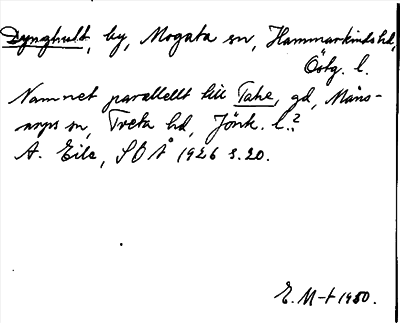 Dynghult, by, Mogata sn, Hammarkinds hd,
Östg. l.
Namnet parallellt till Tahe, gd, Måns-
arps sn, Tveta hd, Jönk. l.?
A. Eile, SOÅ 1926 s. 20.
E. M-t 1950.